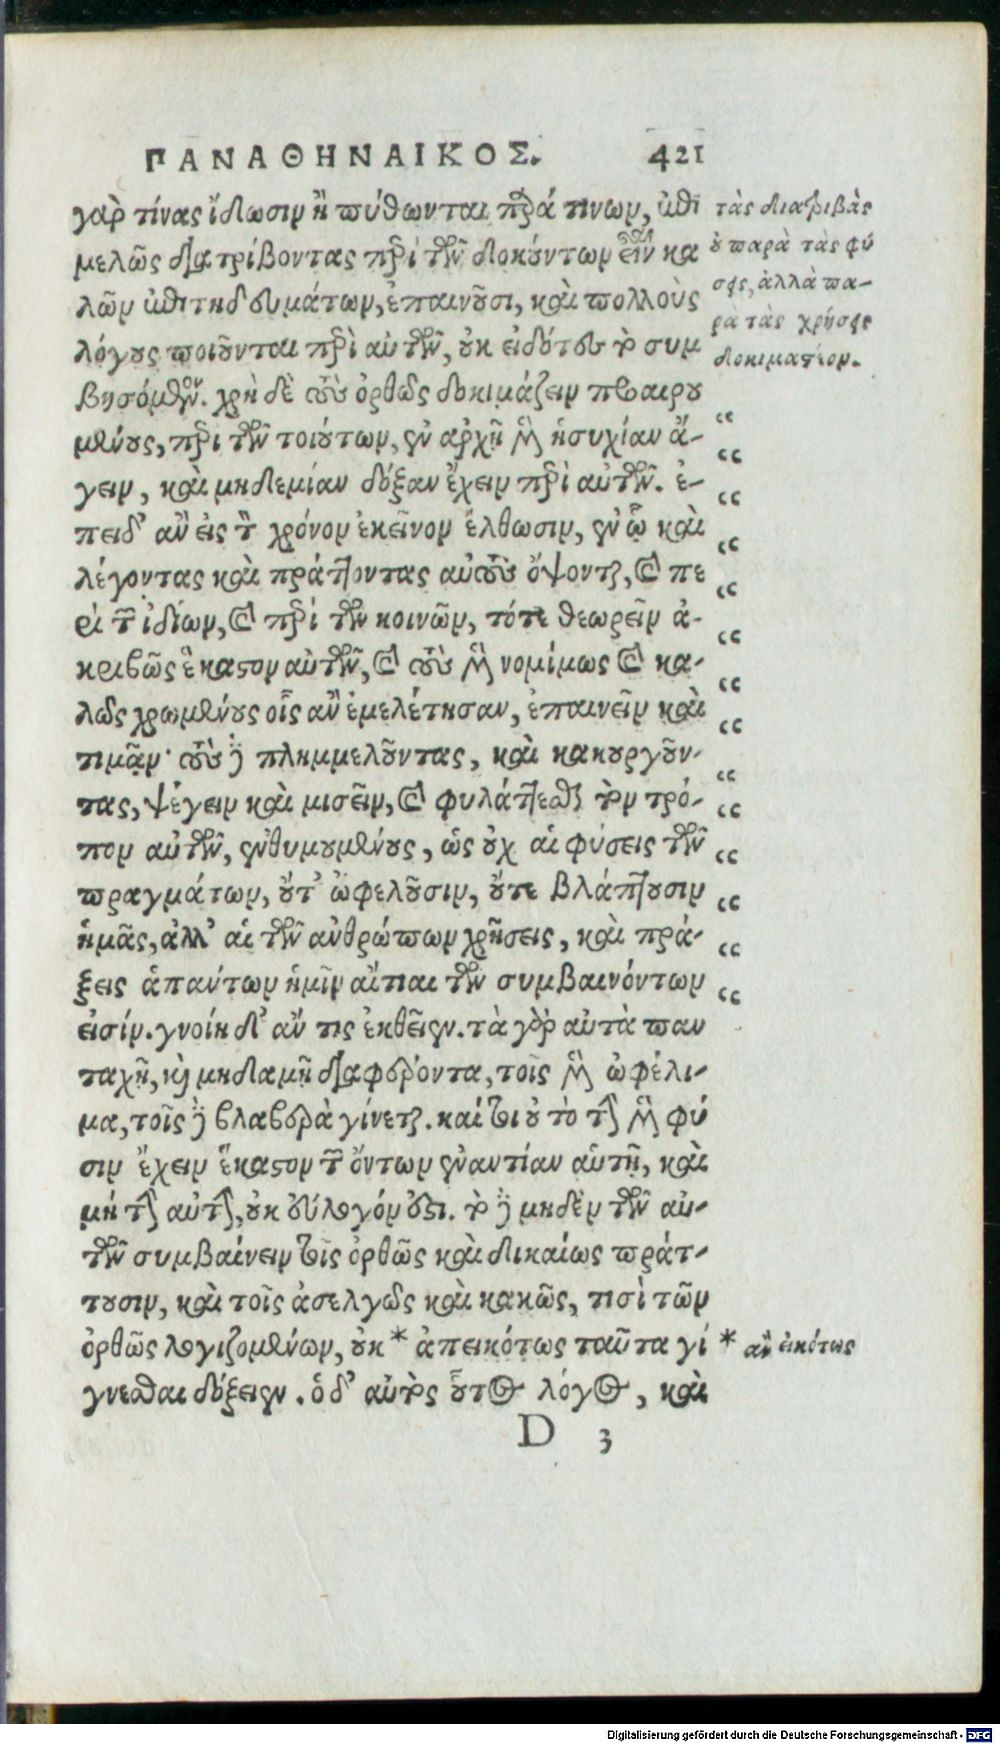 ΠΑΝΑΘΗΝΑΙΚΟΣ. 421
γαρ τίνας ἴδωσιν ἢ πύθωνται παρά τινων, ἐπι
μελῶς διατρίβοντας περὶ τῶν δοκούντων εἶναι κα
λῶν ἐπιτηδευμάτων, ἐπαινοῦσι, καὶ πολλοὺς
λόγους ποιοῦνται περὶ αὐτῶν, οὐκ εἰδότες τὸ συμ
βησόμενον. χρὴ δὲ τοὺς ὀρθῶς δοκιμάζειν προαιρου
μένους, περὶ τῶν τοιούτων, ἐν ἀρχῇ μὲν ἡσυχίαν ἄ-
γειν, καὶ μηδεμίαν δόξαν ἔχειν περὶ αὐτῶν. ἐ-
πειδ' ἂν εἰς τὸν χρόνον ἐκεῖνον ἔλθωσιν, ἐν ᾧ καὶ
λέγοντας καὶ πράττοντας αὐτοὺς ὄψονται, καὶ πε
ρὶ τῶν ἰδίων, καὶ περὶ τῶν κοινῶν, τότε θεωρεῖν ἀ-
κριβῶς ἕκαστον αὐτῶν, καὶ τοὺς μὲν νομίμως καὶ κα-
λῶς χρωμένους οἷς ἂν ἐμελέτησαν, ἐπαινεῖν καὶ
τιμᾷν· τοὺς δὲ πλημμελοῦντας, καὶ κακουργοῦν-
τας, ψέγειν καὶ μισεῖν, καὶ φυλάττεσθαι τὸν τρό-
πον αὐτῶν, ἐνθυμουμένους, ὡς οὐχ αἱ φύσεις τῶν
πραγμάτων, οὔτ' ὠφελοῦσιν, οὔτε βλάπτουσιν
ἡμᾶς, ἀλλ' αἱ τῶν ἀνθρώπων χρῆσεις, καὶ πρά-
ξεις ἁπάντων ἡμῖν αἴτιαι τῶν συμβαινόντων
εἰσίν. γνοίη δ' ἄν τις ἐκεῖθεν. τὰ γὰρ αὐτὰ παν
ταχῇ, καὶ μηδαμῇ διαφέροντα, τοῖς μὲν ὠφέλι-
μα, τοῖς δὲ βλαβερὰ γίνεται. καίτοι οὐ τὸ τὴν μὲν φύ
σιν ἔχειν ἕκαστον τῶν ὄντων ἐναντίαν αὑτῇ, καὶ
μή τὴν αὐτὴν, οὐκ εὔλογόν ἐστι. τὸ δὲ μηδὲν τῶν αὐ-
τῶν συμβαίνειν τοῖς ὀρθῶς καὶ δικαίως πράτ-
τουσιν, καὶ τοῖς ἀσελγῶς καὶ κακῶς, τισὶ τῶν
ὀρθῶς λογιζομένων, οὐκ * ἀπεικότως ταῦτα γί
γνεσθαι δόξειεν. ὁ δ' αὐτὸς οὗτος λόγος, καὶ
D 3
τὰς διατριβὰς
οὐ παρὰ τὰς φύ
σεις, ἀλλὰ πα-
ρὰ τὰς χρήσεις
δοκιμαστέον.
* ἂν εἰκότως
Digitalisierung gefördert durch die Deutsche Forschungsgemeinschaft - DFG